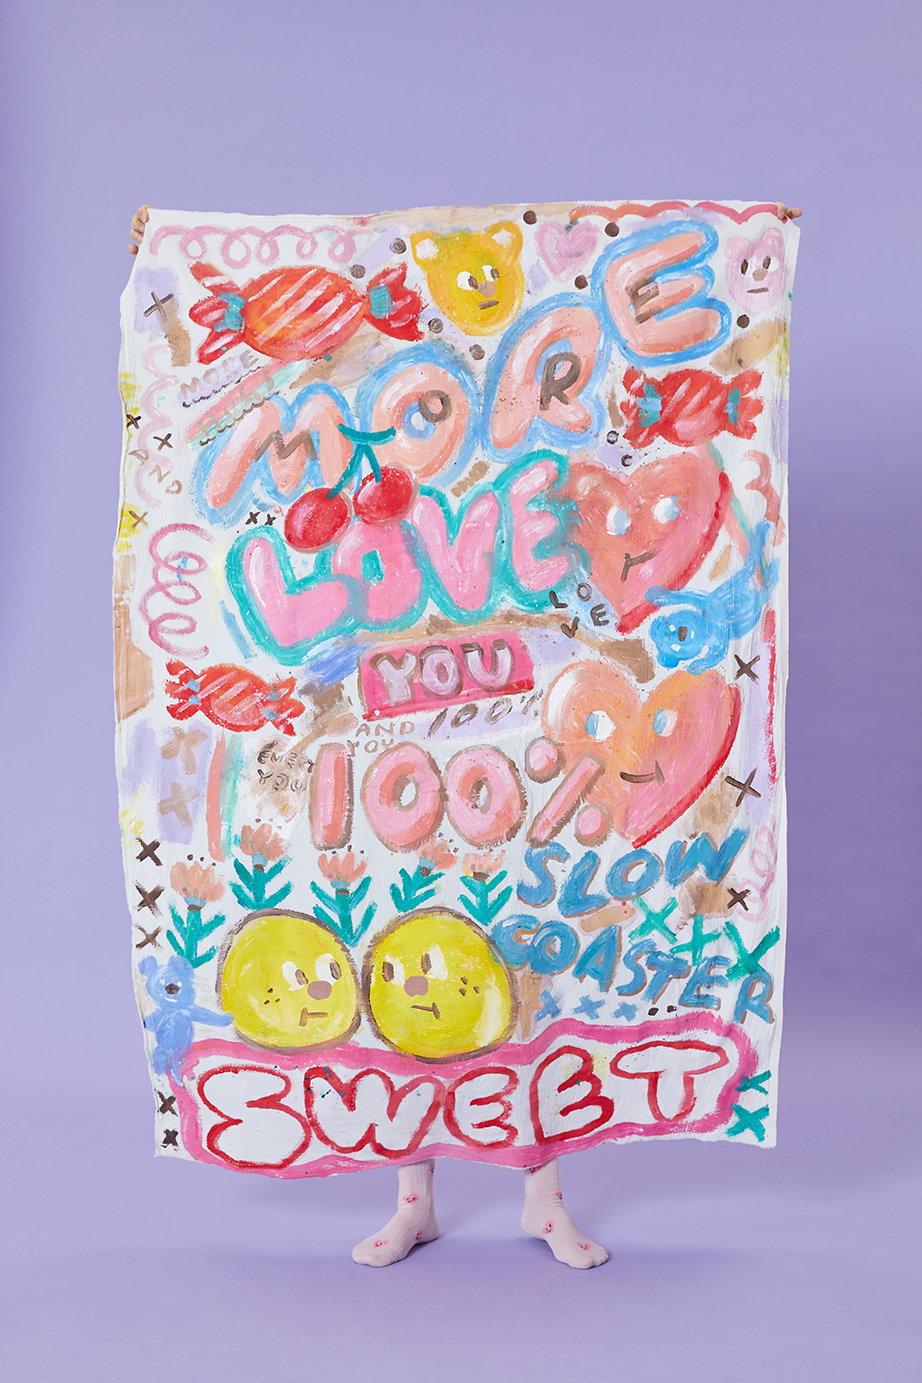 MORE
MORE
MORE
AND
LOVE
LOVE
YOU
100%
AND
YOU
EVERY
YOU
100%
SLOW
COASTER
SWEET